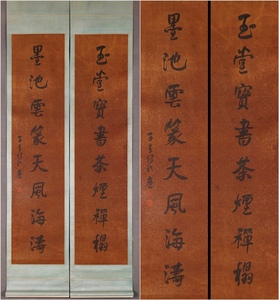 玉堂寶書茶煙禪榻
墨池雲篆天風海濤
玉堂寶書茶煙禪榻
墨池雲篆天風海濤